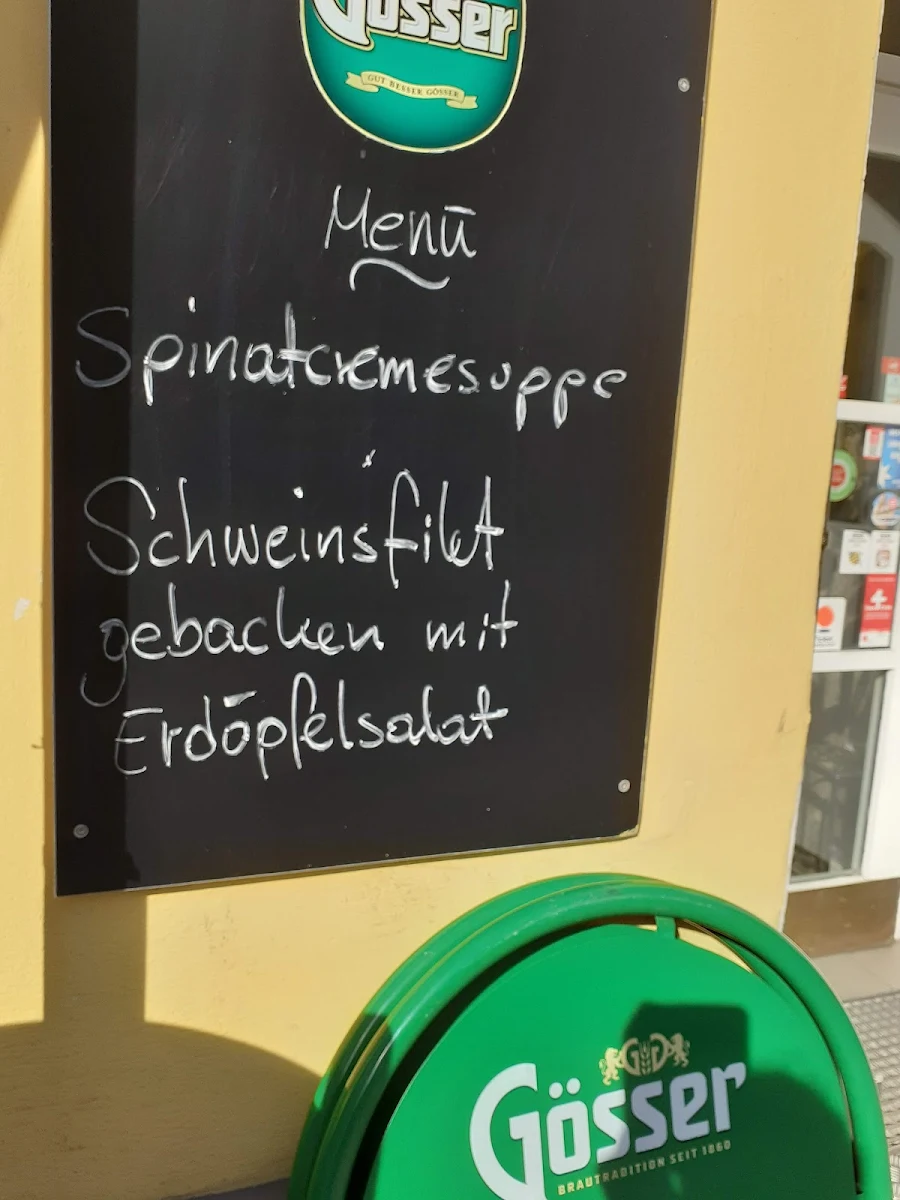 Gösser
GUT BESSER GÖSSER
Menü
Spinatcremesuppe
Schweinsfilet
gebacken mit
Erdöpfelsalat
GG
Gösser
BRAUTRADITION SEIT 1860